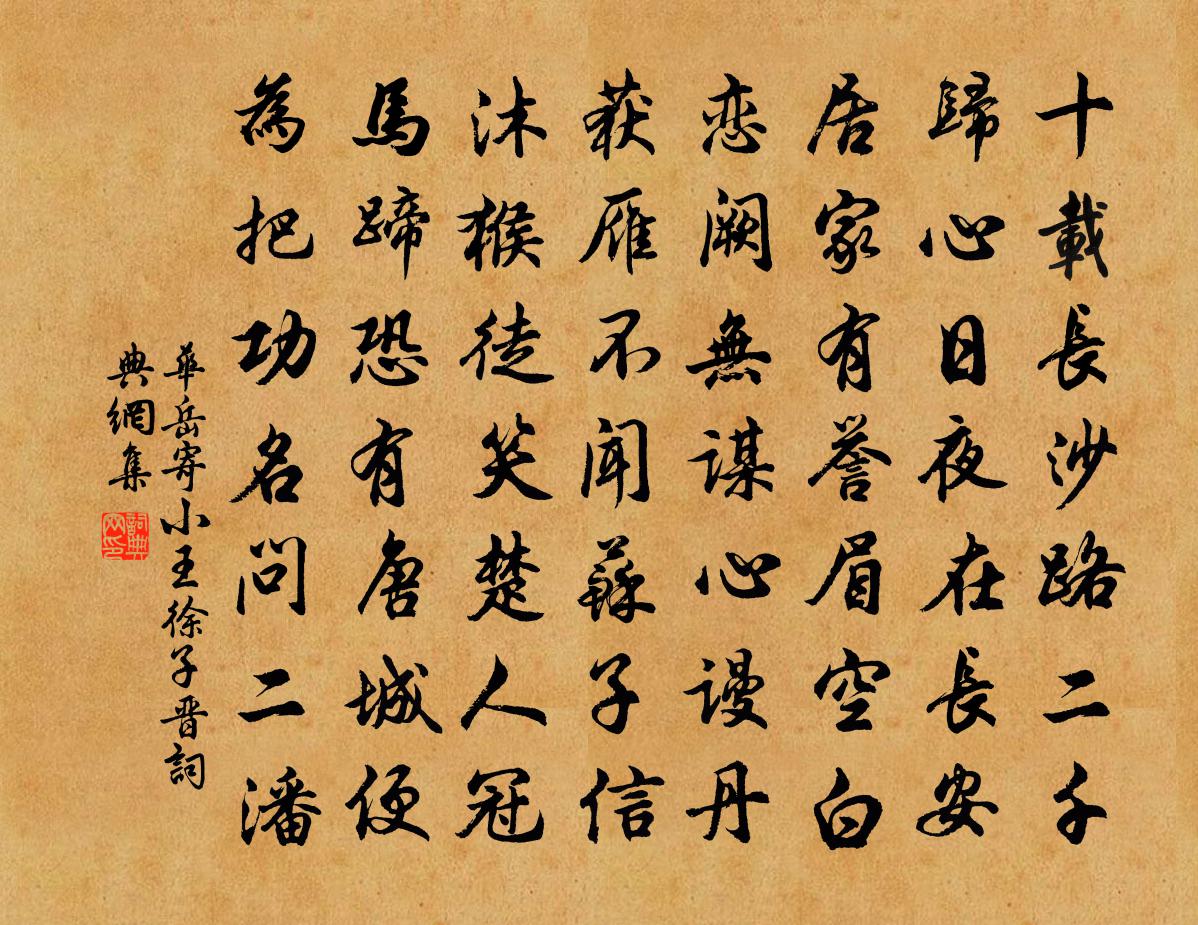 十載長沙路二千
歸心日夜在長安
居家有譽眉空白
恋阙無謀心謾丹
获雁不聞蘇子信
沐猴徒笑楚人冠
馬蹄恐有唐城便
為把功名問二潘
華岳寄小王徐子晋詞
典網集
詞典
网印